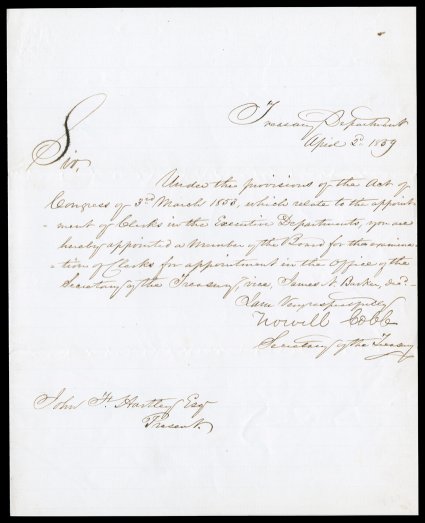 Treasury Department
April 2d 1859
Sir,
Under the provisions of the Act of
Congress of 3rd March 1853, which relate to the appoint
-ment of Clerks in the Executive Departments, you are
hereby appointed a Member of the Board for the examina
-tion of Clerks for appointment in the Office of the
Secretary of the Treasury, vice, James N. Barker, decd.
I am Very respectfully
Howell Cobb
Secretary of the Treasury
John F. Hartley Esq
Present.